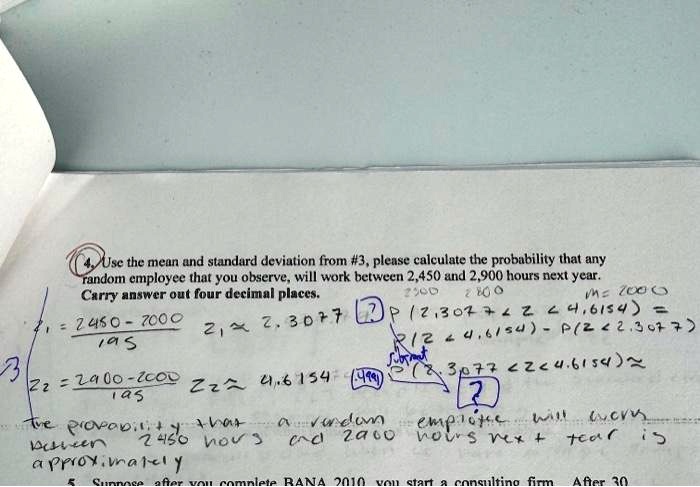 4. Use the mean and standard deviation from #3, please calculate the probability that any
random employee that you observe, will work between 2,450 and 2,900 hours next year.
Carry answer out four decimal places.
2500 2800 m= 2000
z₁ = 2450 - 2000 / 195 z₁ ≈ 2.3077 ? P(2.3077 < z < 4.6154) =
P(z < 4.6154) - P(z < 2.3077)
Subtract
-3
z₂ = 2900 - 2000 / 195 z₂ ≈ 4.6154 .4999 P(2.3077 < z < 4.6154) ≈
?
The probability that a random employee will work
between 2450 hours and 2900 hours next year is
approximately
5. Suppose after you complete BANA 2010 you start a consulting firm. After 30